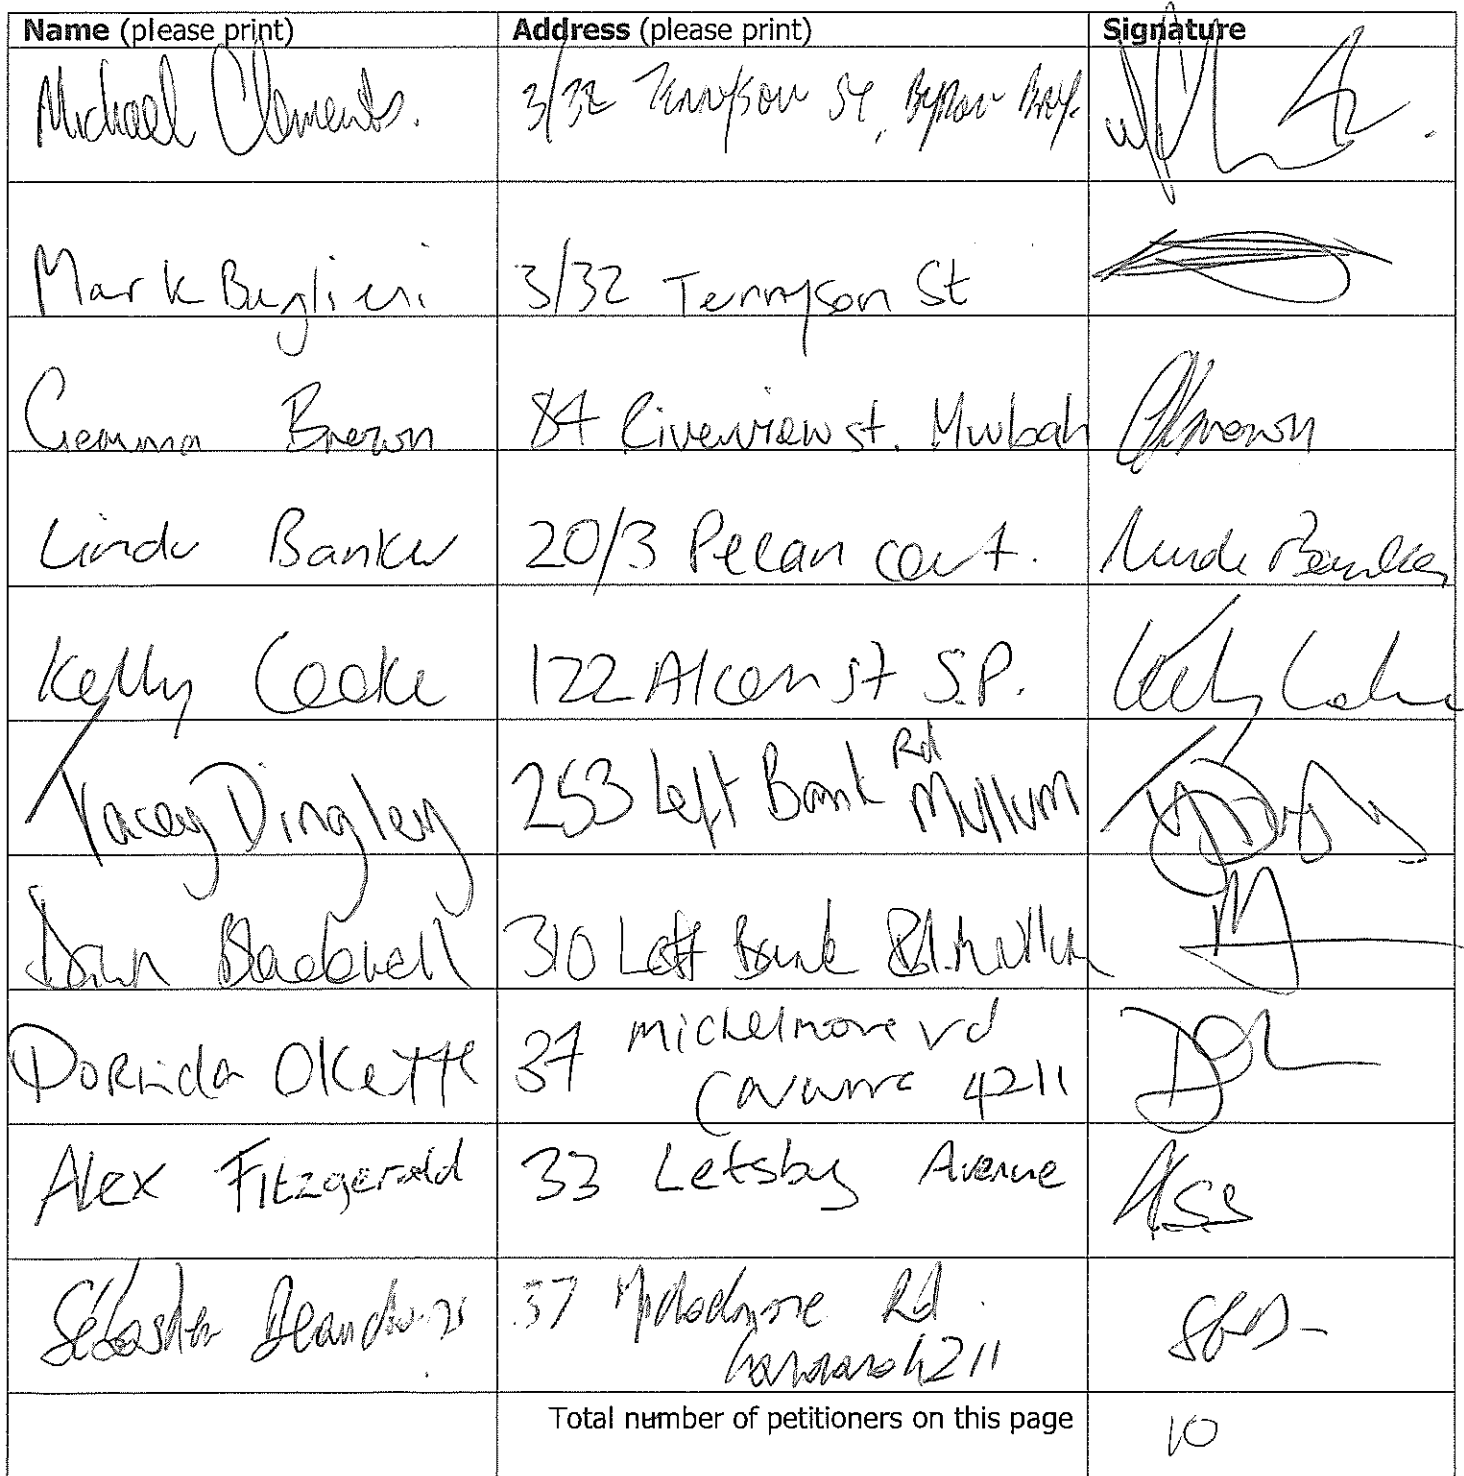 Name (please print) Address (please print) Signature
Michael Clements. 3/32 Tennyson St, Byron Bay.
Mark Buglieri 3/32 Tennyson St
Gemma Brown 84 Riverview st. Murbah GBrown
Linda Banker 20/3 Pecan court. Linda Banker
Kelly Cooke 122 Alcorn st S.P. Kelly Cooke
Tracey Dingley 253 Left Bank Rd Mullum
310 Left Bank Rd. Mullum
Dorinda OKette 37 michelmore rd
Carrara 4211
Alex Fitzgerald 33 Letsby Avenue
37 Rd
4211
Total number of petitioners on this page 10